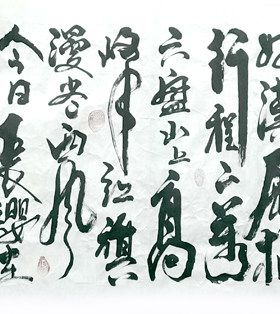 好漢屈指
行程二萬
六盤山上高
峰紅旗
漫卷西風
今日長纓在